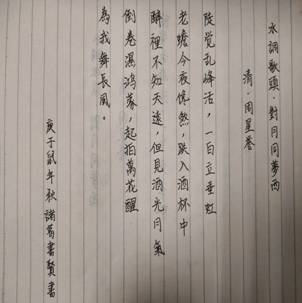 水調歌頭·對月同夢西
清·周星誉
陡覺亂峰活，一白立垂虹
老蟾今夜煞，跌入酒杯中
醉裡不知天遠，但見酒光月氣
倒卷濕鴻濛，起拍萬花醒
為我舞長風。
庚子鼠年秋諸葛書賢書